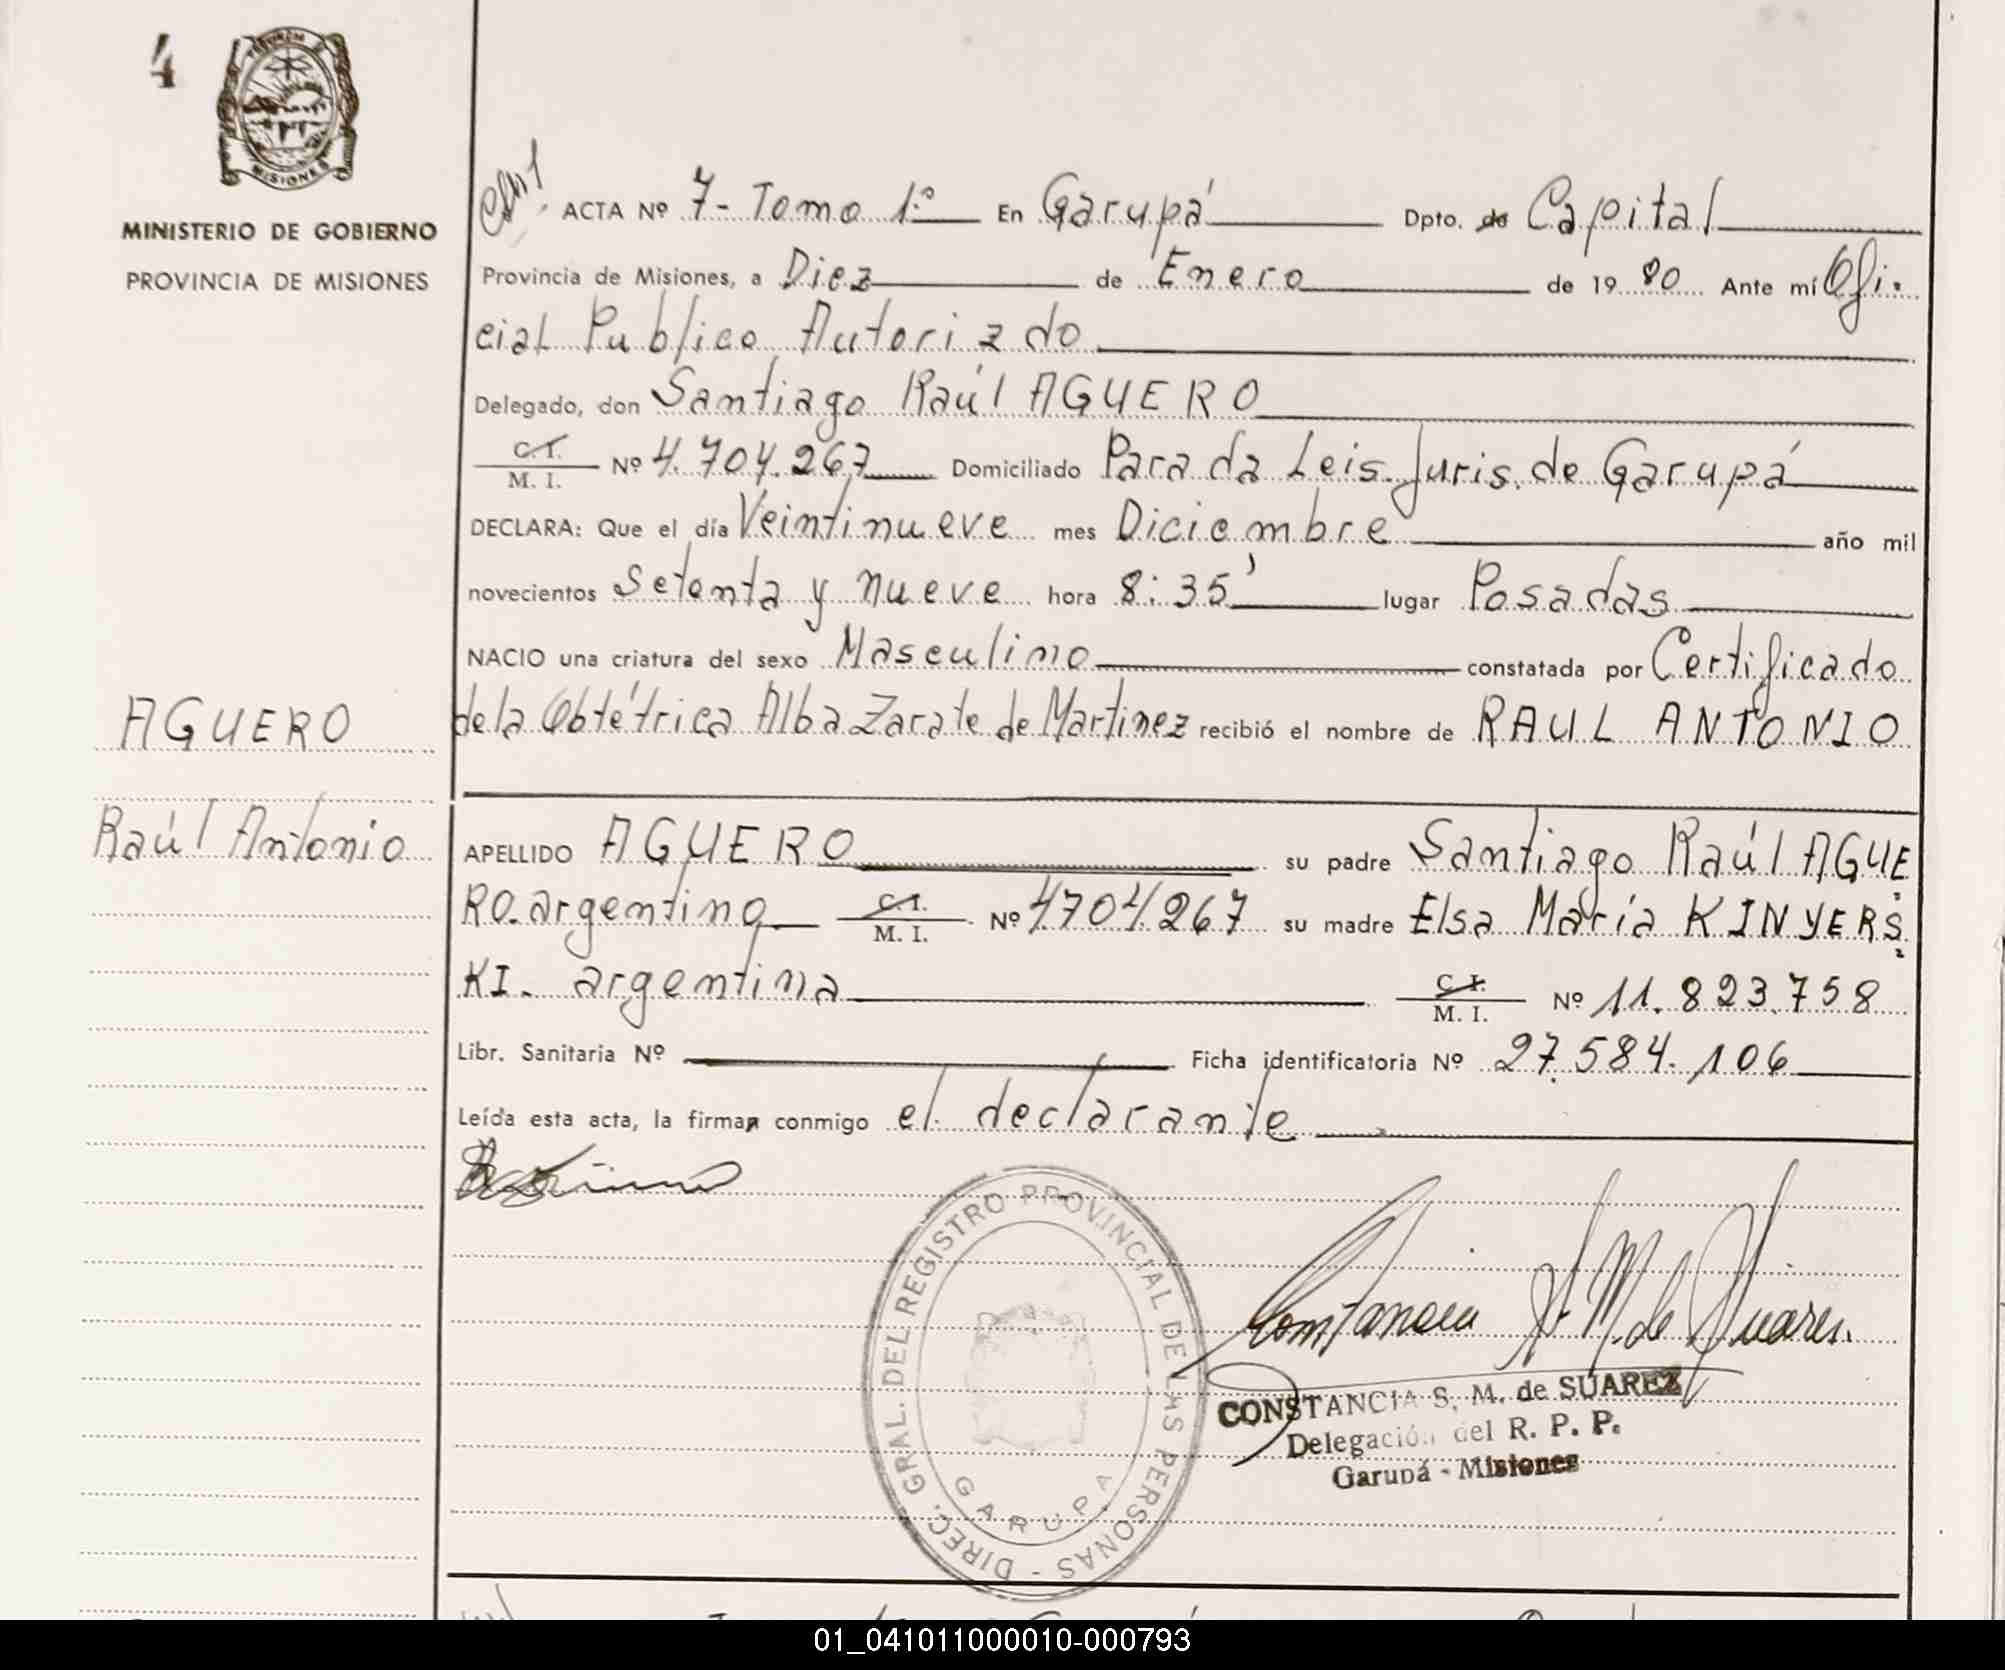 4
PROVINCIA DE
MISIONES
MINISTERIO DE GOBIERNO
PROVINCIA DE MISIONES
ACTA Nº 7- Tomo 1º En Garupá Dpto. de Capital
Provincia de Misiones, a Diez de Enero de 19 80 Ante mí Ofi-
cial Publico Autorizdo
Delegado, don Santiago Raúl AGUERO
C. I.
M. I. Nº 4.704.267 Domiciliado Parada Leis. Juris. de Garupá
DECLARA: Que el día Veintinueve mes Diciembre año mil
novecientos Setenta y nueve hora 8:35' lugar Posadas
NACIO una criatura del sexo Masculino constatada por Certificado
de la Obtétrica Alba Zarate de Martinez recibió el nombre de RAUL ANTONIO
AGUERO
Raúl Antonio
APELLIDO AGUERO su padre Santiago Raúl AGUE
RO. argentino C. I. / M. I. Nº 4.704.267 su madre Elsa María KINYERS
KI. argentina C. I. / M. I. Nº 11.823.758
Libr. Sanitaria Nº Ficha identificatoria Nº 27.584.106
Leída esta acta, la firman conmigo el declarante
DIREC. GRAL. DEL REGISTRO PROVINCIAL DE LAS PERSONAS -
GARUPA
Constancia S. M. de Suarez.
CONSTANCIA S. M. de SUAREZ
Delegación del R. P. P.
Garupá - Misiones
01_041011000010-000793